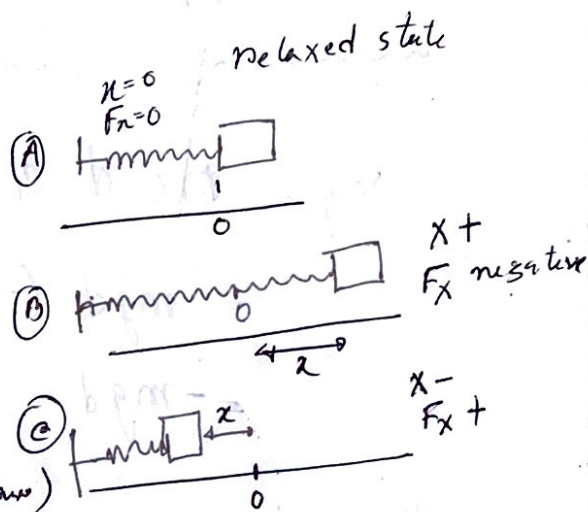 relaxed state
x=0
Fx=0
A
0
x+
B
0
Fx negative
x
x-
C
x
Fx +
0